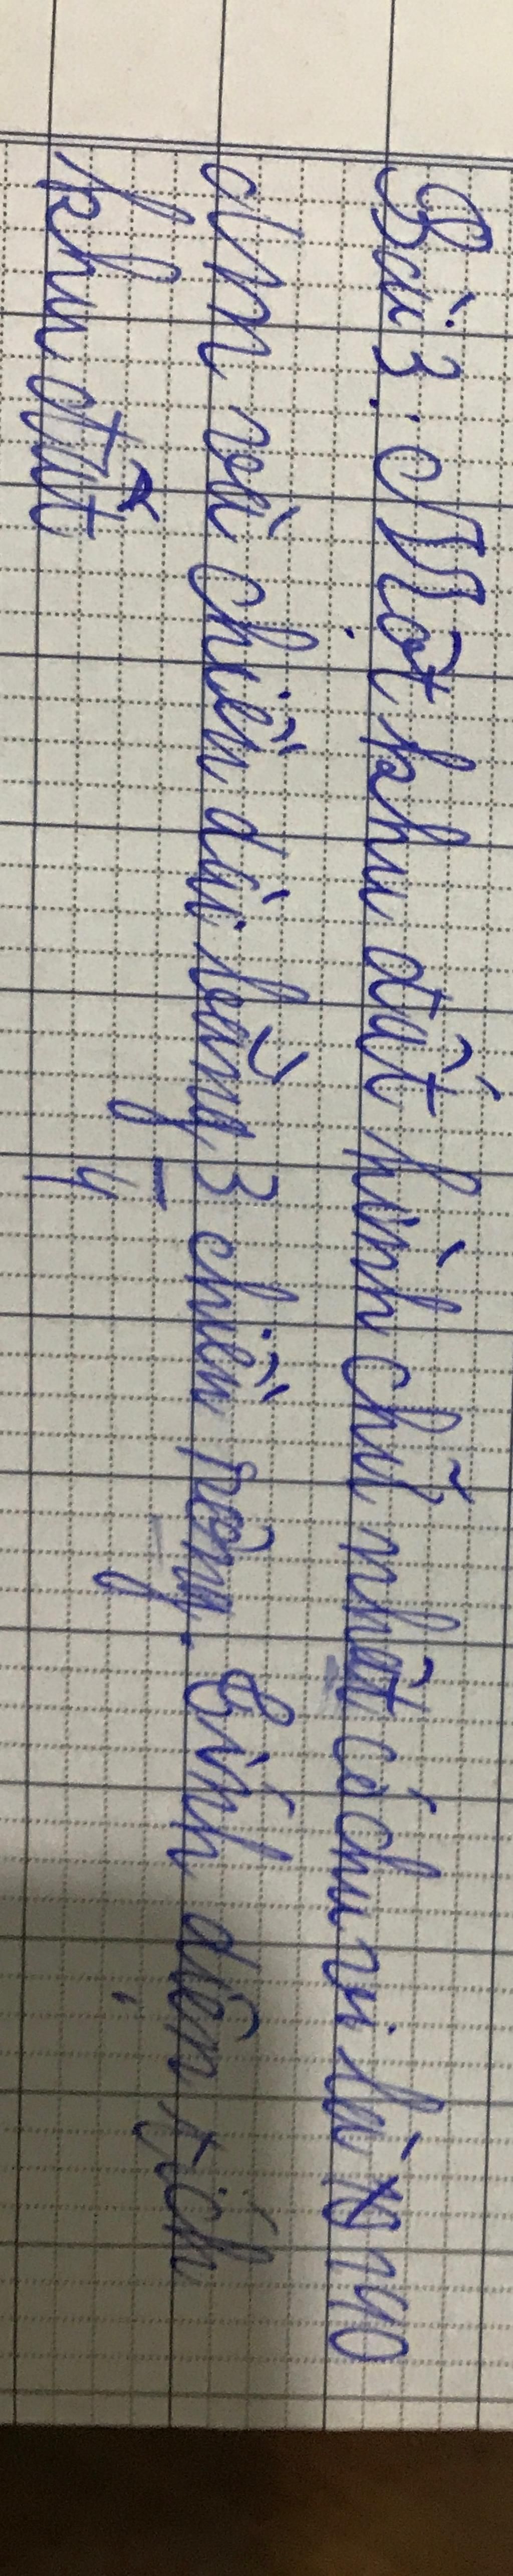 Bài 3. Một khu đất hình chữ nhật có chu vi là 140
m và chiều dài bằng 3/4 chiều rộng. Tính diện tích
khu đất